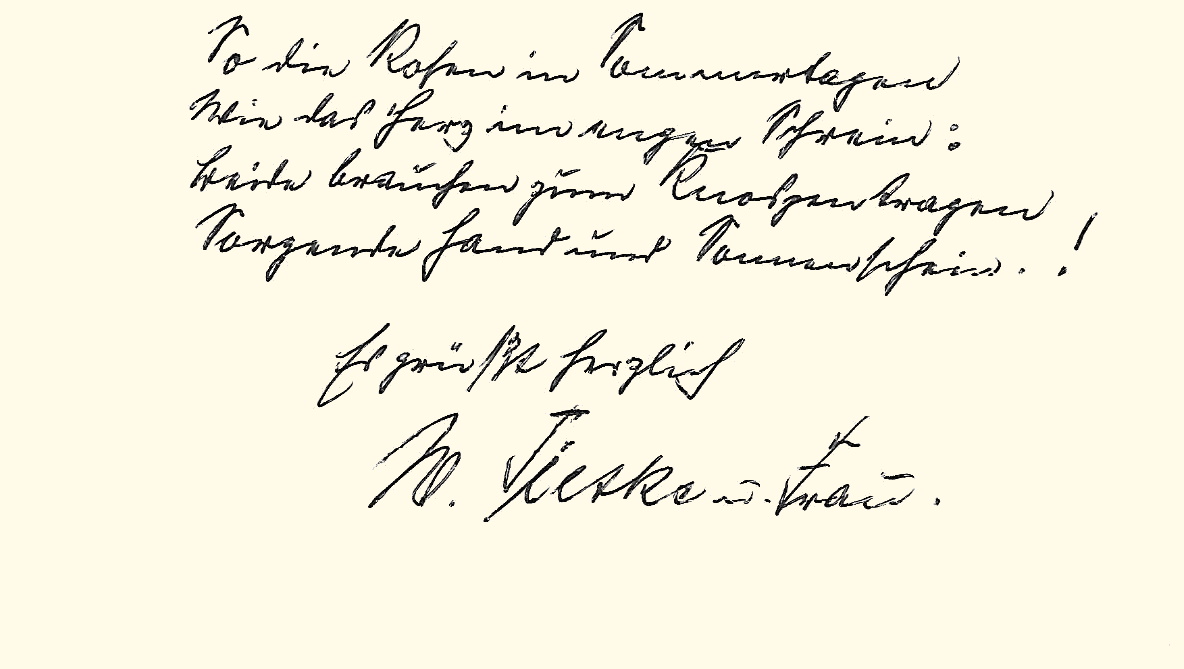 So die Rosen in Sommertagen
Wie das Herz im engen Schrein:
beide brauchen zum Knospentragen
Sorgende Hand und Sonnenschein.!
Es grüßt herzlich
W. Tietke u. Frau.